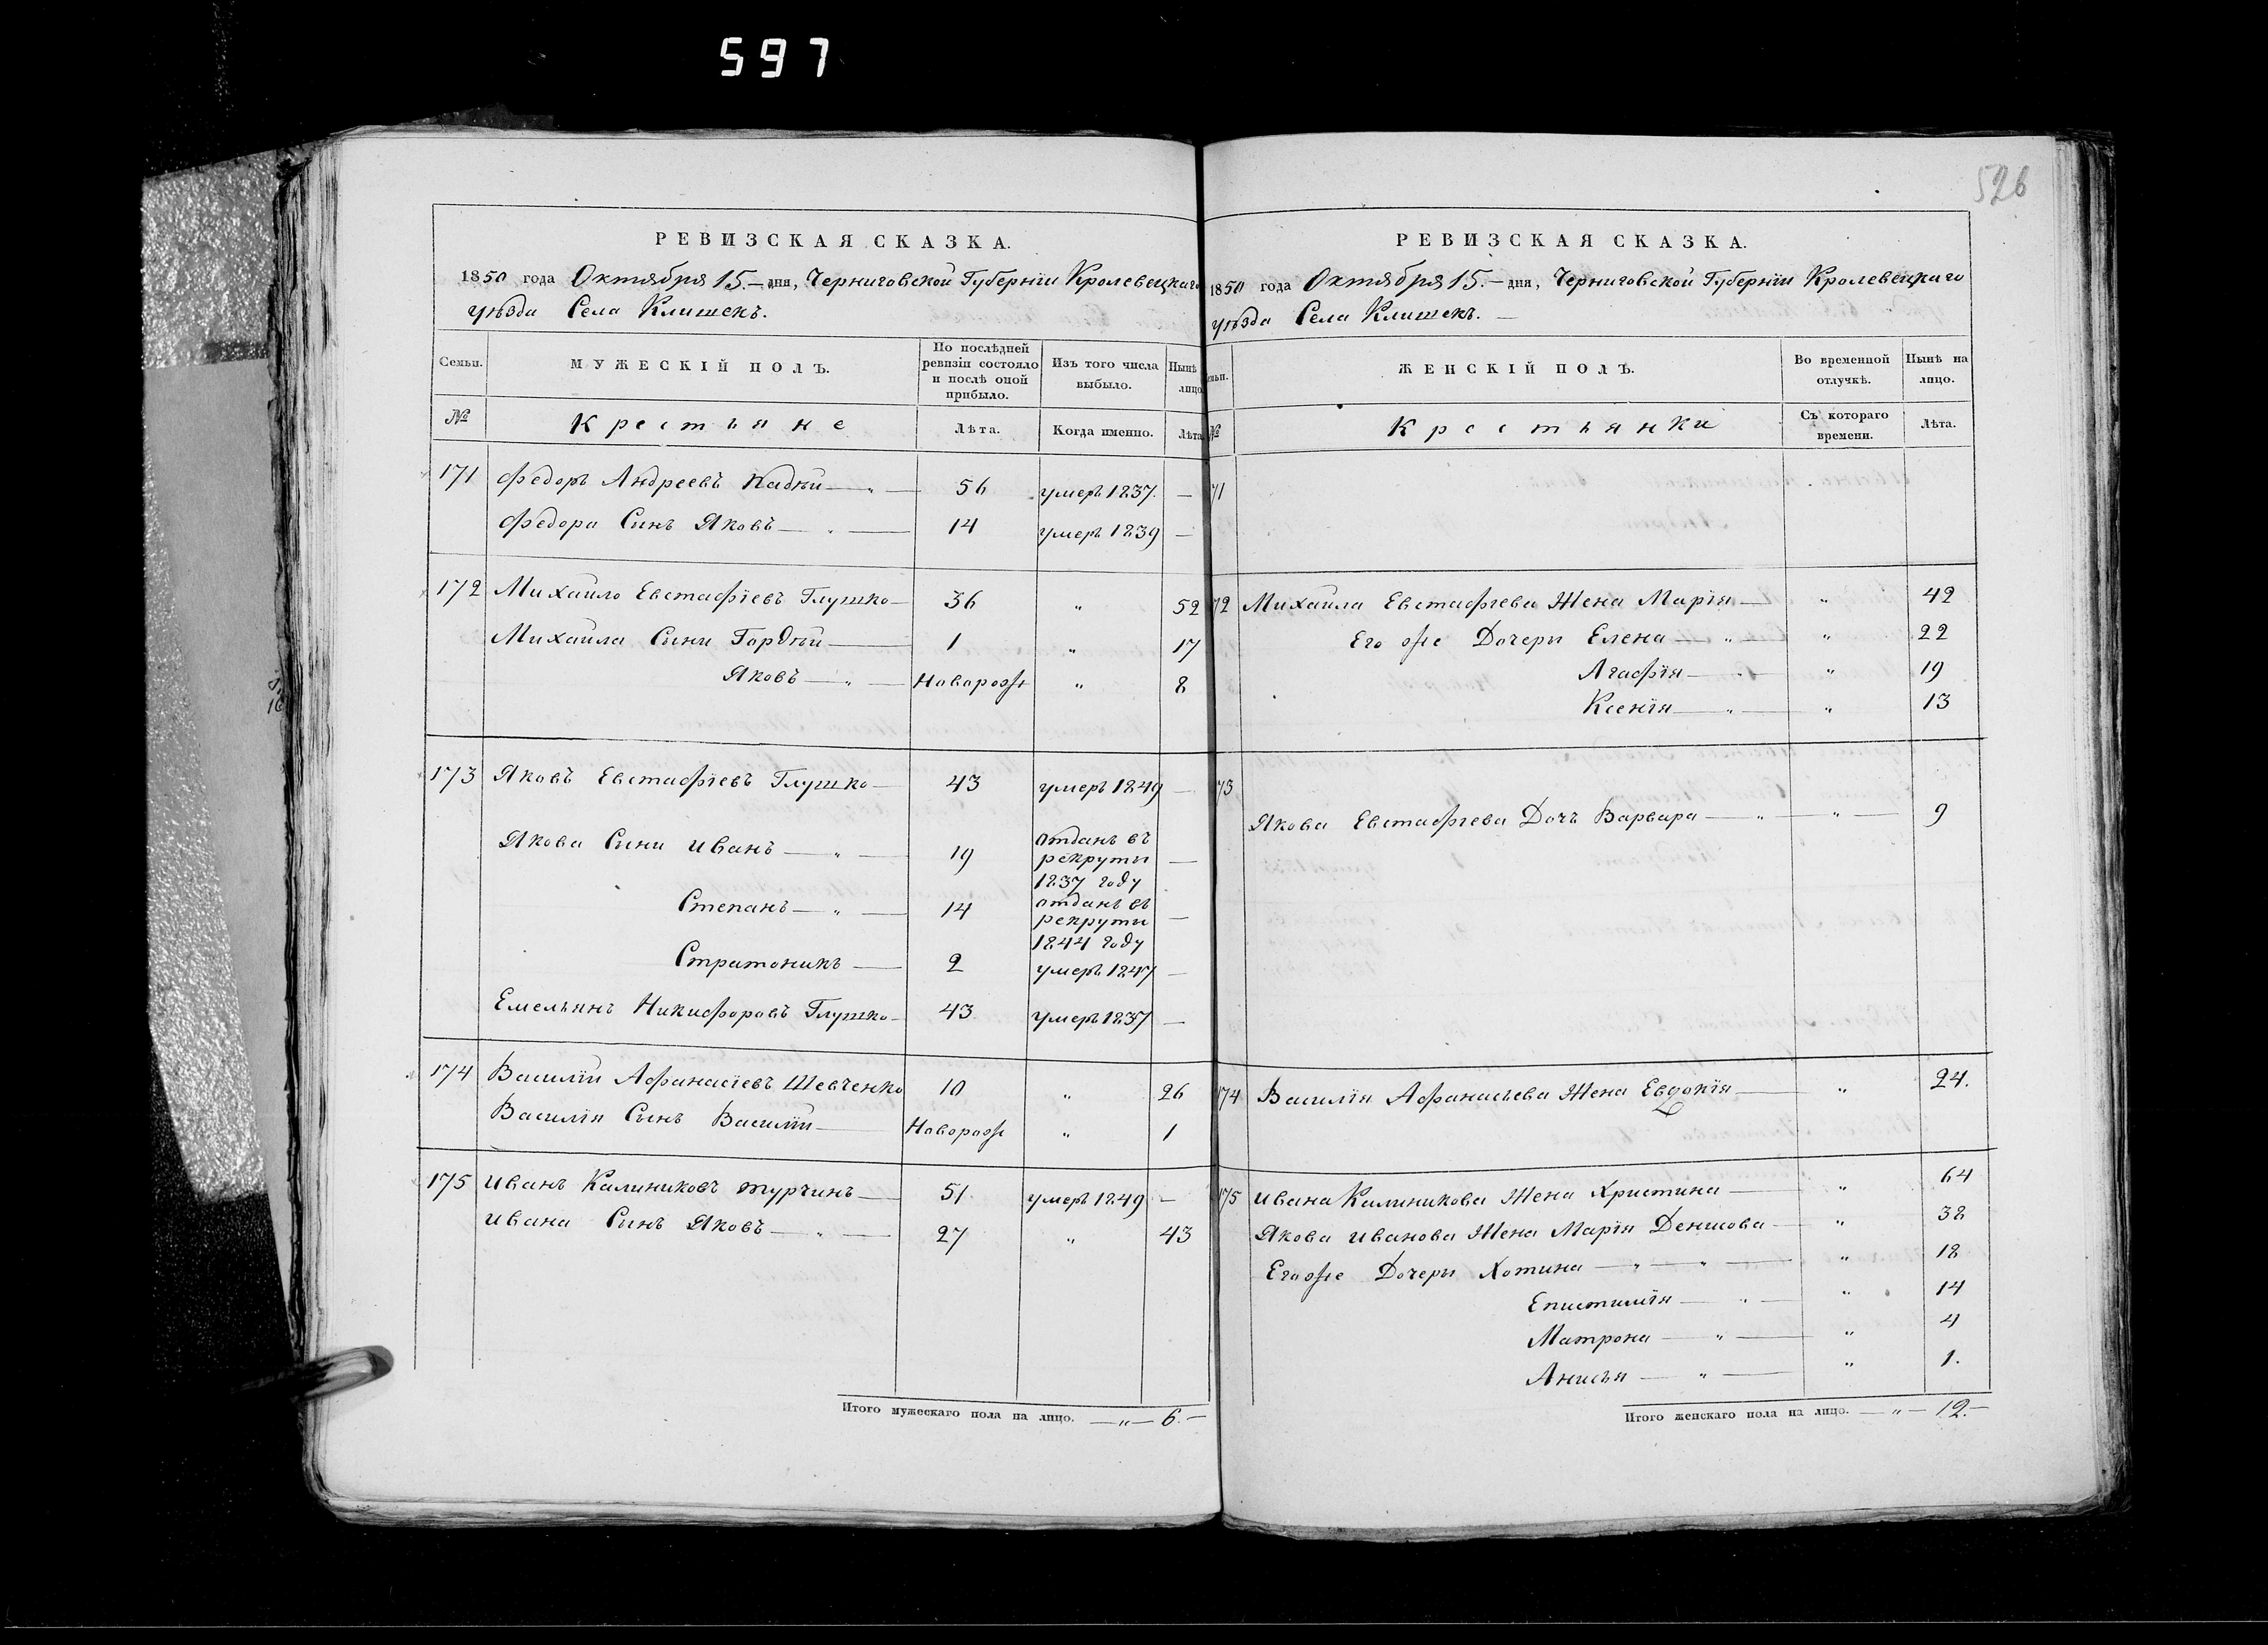 597
526
РЕВИЗСКАЯ СКАЗКА.
1850 года Октября 15.— дня, Черниговской Губернїи Кролевецкаго
уѣзда Села Клишекъ.
Семьи. МУЖЕСКІЙ ПОЛЪ. По послѣдней ревизіи состояло и послѣ оной прибыло. Изъ того числа выбыло. Нынѣ лицо
№ Крестьяне Лѣта. Когда именно. Лѣта
171 Федоръ Андреевъ 56 умеръ 1837. —
Федора Синъ Яковъ 14 умеръ 1839 —
172 Михайло Евстафїевъ Глушко 36 " 52
Михайла Сини Гордѣй 1 " 17
Яковъ "ناворож " 8
173 Яковъ Евстафїевъ Глушко 43 умеръ 1849 —
Якова Сини Иванъ " 19 отданъ въ рекруты 1837 году —
Степанъ " 14 отданъ въ рекруты 1844 году —
Стратоникъ 2 умеръ 1847 —
Емельянъ Никифоровъ Глушко 43 умеръ 1837 —
174 Василїй Афанасїевъ Шевченко 10 " 26
Василїя Сынъ Василїй Новорож " 1
175 Иванъ Калиниковъ Турчинъ 51 умеръ 1849 —
Ивана Синъ Яковъ " 27 " 43
Итого мужескаго пола на лицо. — " — 6. —
РЕВИЗСКАЯ СКАЗКА.
1850 года Октября 15.— дня, Черниговской Губернїи Кролевецкаго
уѣзда Села Клишекъ. —
ЖЕНСКІЙ ПОЛЪ. Во временной отлучкѣ. Нынѣ на лицо.
№ Крестьянки Съ котораго времени. Лѣта.
71
72 Михайла Евстафїева Жена Марїя " 42
Его же Дочеры Елена " " 22
Агафїя " 19
Ксенїя " " 13
73
Якова Евстафїева Дочъ Варвара " " 9
174 Василїя Афанасьева Жена Евдокїя " 24.
175 Ивана Калиникова Жена Христина " 64
Якова Иванова Жена Марїя Денисова " 38
Егоже Дочеры Хотина " " " 18
Епистимїя " " 14
Матрона " " 4
Анисья " " 1.
Итого женскаго пола на лицо. — " — 12. —